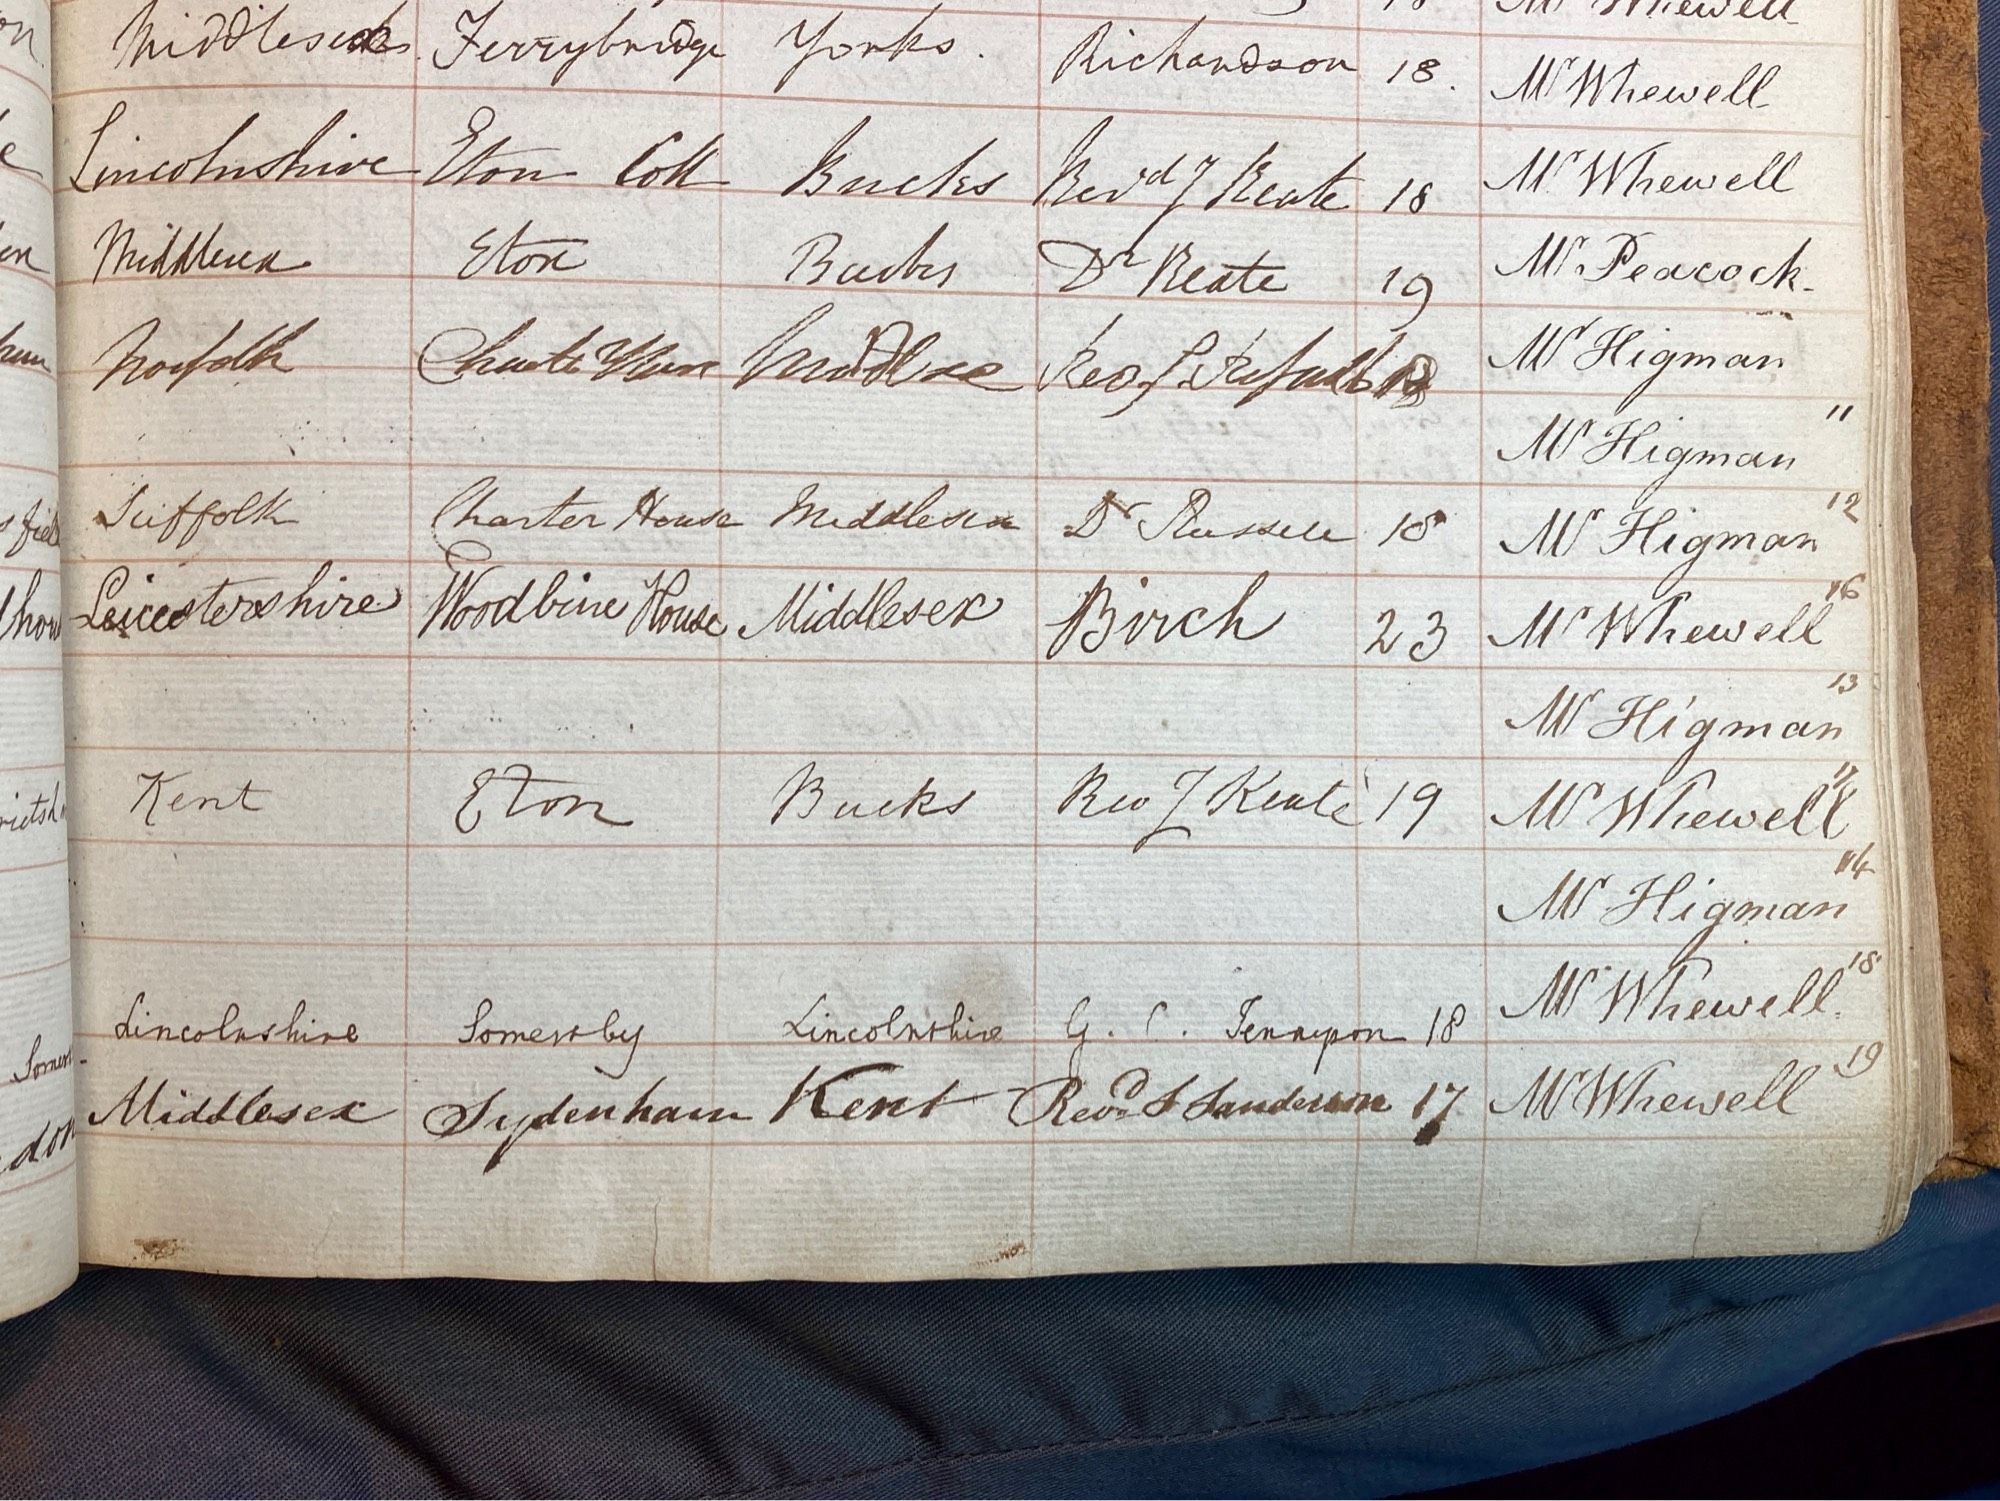 Mr Whewell
Middlesex Ferrybridge Yorks. Richardson 18. Mr Whewell
Lincolnshire Eton Coll Bucks Revd J Keate 18 Mr Whewell
Middlesex Eton Bucks Dr Keate 19 Mr Peacock.
Norfolk Charter House Middlesex Mr Higman
Mr Higman 11
Suffolk Charter House Middlesex Dr Russell 18 Mr Higman 12
Leicestershire Woodbine House Middlesex Birch 23 Mr Whewell 16
Mr Higman 13
Kent Eton Bucks Rev J Keate 19 Mr Whewell 17
Mr Higman 14
Lincolnshire Somersby Lincolnshire G. C. Tennyson 18 Mr Whewell. 18
Middlesex Sydenham Kent Revd S Sanderson 17 Mr Whewell 19